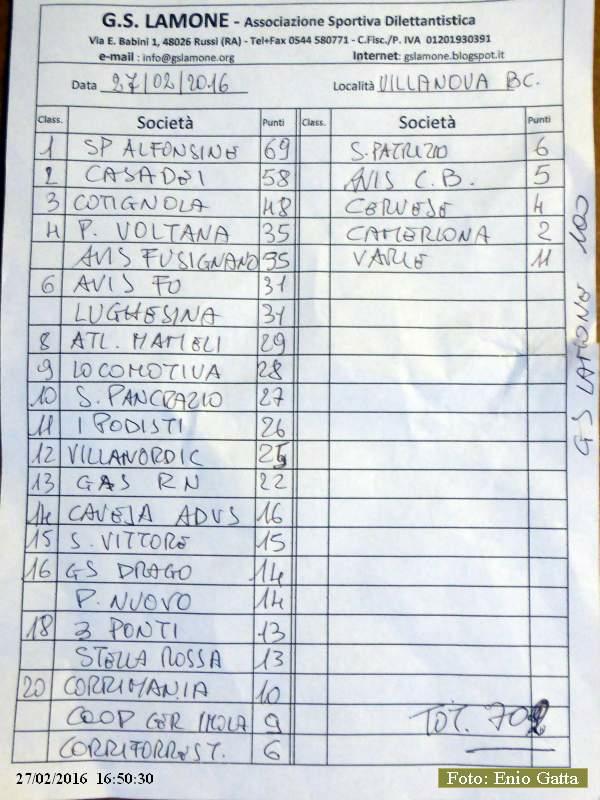 G.S. LAMONE - Associazione Sportiva Dilettantistica
Via E. Babini 1, 48026 Russi (RA) - Tel+Fax 0544 580771 - C.Fisc./P. IVA 01201930391
e-mail : info@gslamone.org Internet: gslamone.blogspot.it
Data 27/02/2016 Località VILLANOVA BC.
Class. Società Punti Class. Società Punti
1 SP ALFONSINE 69 S. PATRIZIO 6
2 CASADEI 58 AVIS C.B. 5
3 COTIGNOLA 48 CERVESE 4
4 P. VOLTANA 35 CAMERLONA 2
AVIS FUSIGNANO 35 VARIE 11
6 AVIS FO 31
LUGHESINA 31
8 ATL. MAMELI 29
9 LOCOMOTIVA 28
10 S. PANCRAZIO 27
11 I PODISTI 26
12 VILLANORDIC 25
13 GAS RN 22
14 CAVEJA ADVS 16
15 S. VITTORE 15
16 GS DRAGO 14
P. NUOVO 14
18 3 PONTI 13
STELLA ROSSA 13
20 CORRIMANIA 10
COOP CER IMOLA 9
CORRIFORREST. 6
TOT.
GS LAMONE 100
27/02/2016 16:50:30
Foto: Enio Gatta